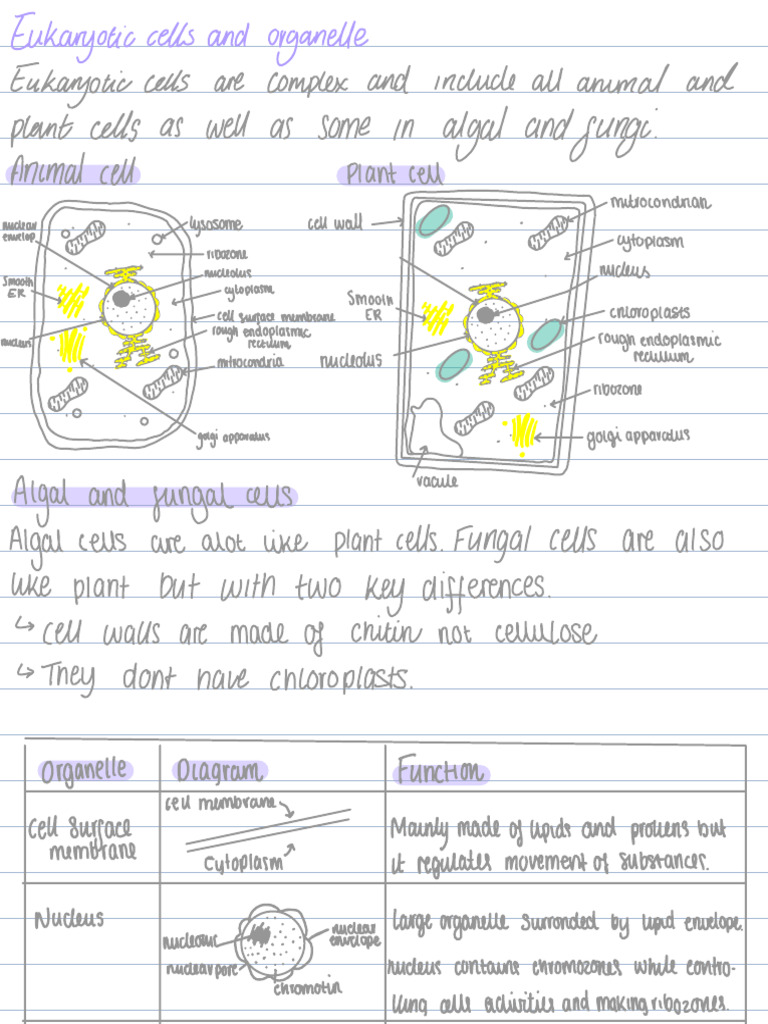 Eukaryotic cells and organelle
Eukaryotic cells are complex and include all animal and
plant cells as well as some in algal and fungi.
Animal cell
nuclear
envelop
lysosome
ribozone
nucleolus
Smooth
ER
cytoplasm
cell surface membrane
rough endoplasmic
rectilum
nucleus
mitrocondria
golgi apparatus
Plant cell
cell wall
mitrocondrian
cytoplasm
nucleus
Smooth
ER
chloroplasts
rough endoplasmic
rectilum
nucleolus
ribozone
golgi apparatus
vacule
Algal and fungal cells
Algal cells are alot like plant cells. Fungal cells are also
like plant but with two key differences.
↳ cell walls are made of chitin not cellulose
↳ They dont have chloroplasts.
Organelle Diagram Function
Cell surface
membrane
cell membrane
cytoplasm
Mainly made of lipids and protiens but
it regulates movement of substances.
Nucleus
nuclear
envelope
nuclear pore
chromotin
Large organelle surronded by lipid envelope.
nucleus contains chromozones while contro-
lling cells activities and making ribozones.